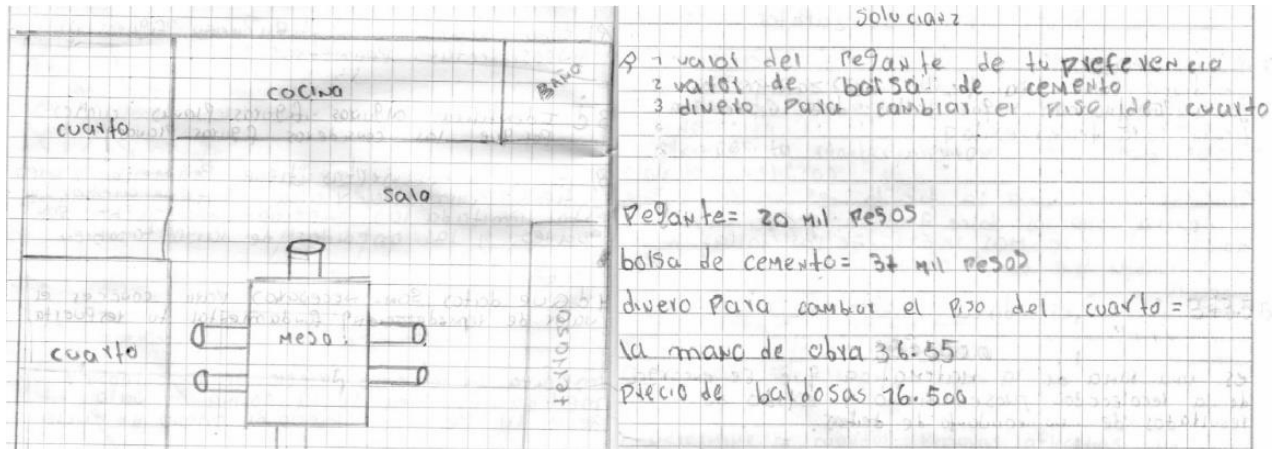 cocina
BAÑO
cuarto
sala
cuarto
mesa
terraso
solucion 2
R 1 valor del pegante de tu preferencia
2 valor de bolsa de cemento
3 dinero para cambiar el piso de cuarto
Pegante= 20 mil pesos
bolsa de cemento= 37 mil pesos
dinero para cambiar el piso del cuarto =
la mano de obra 36.55
precio de baldosas 16.500